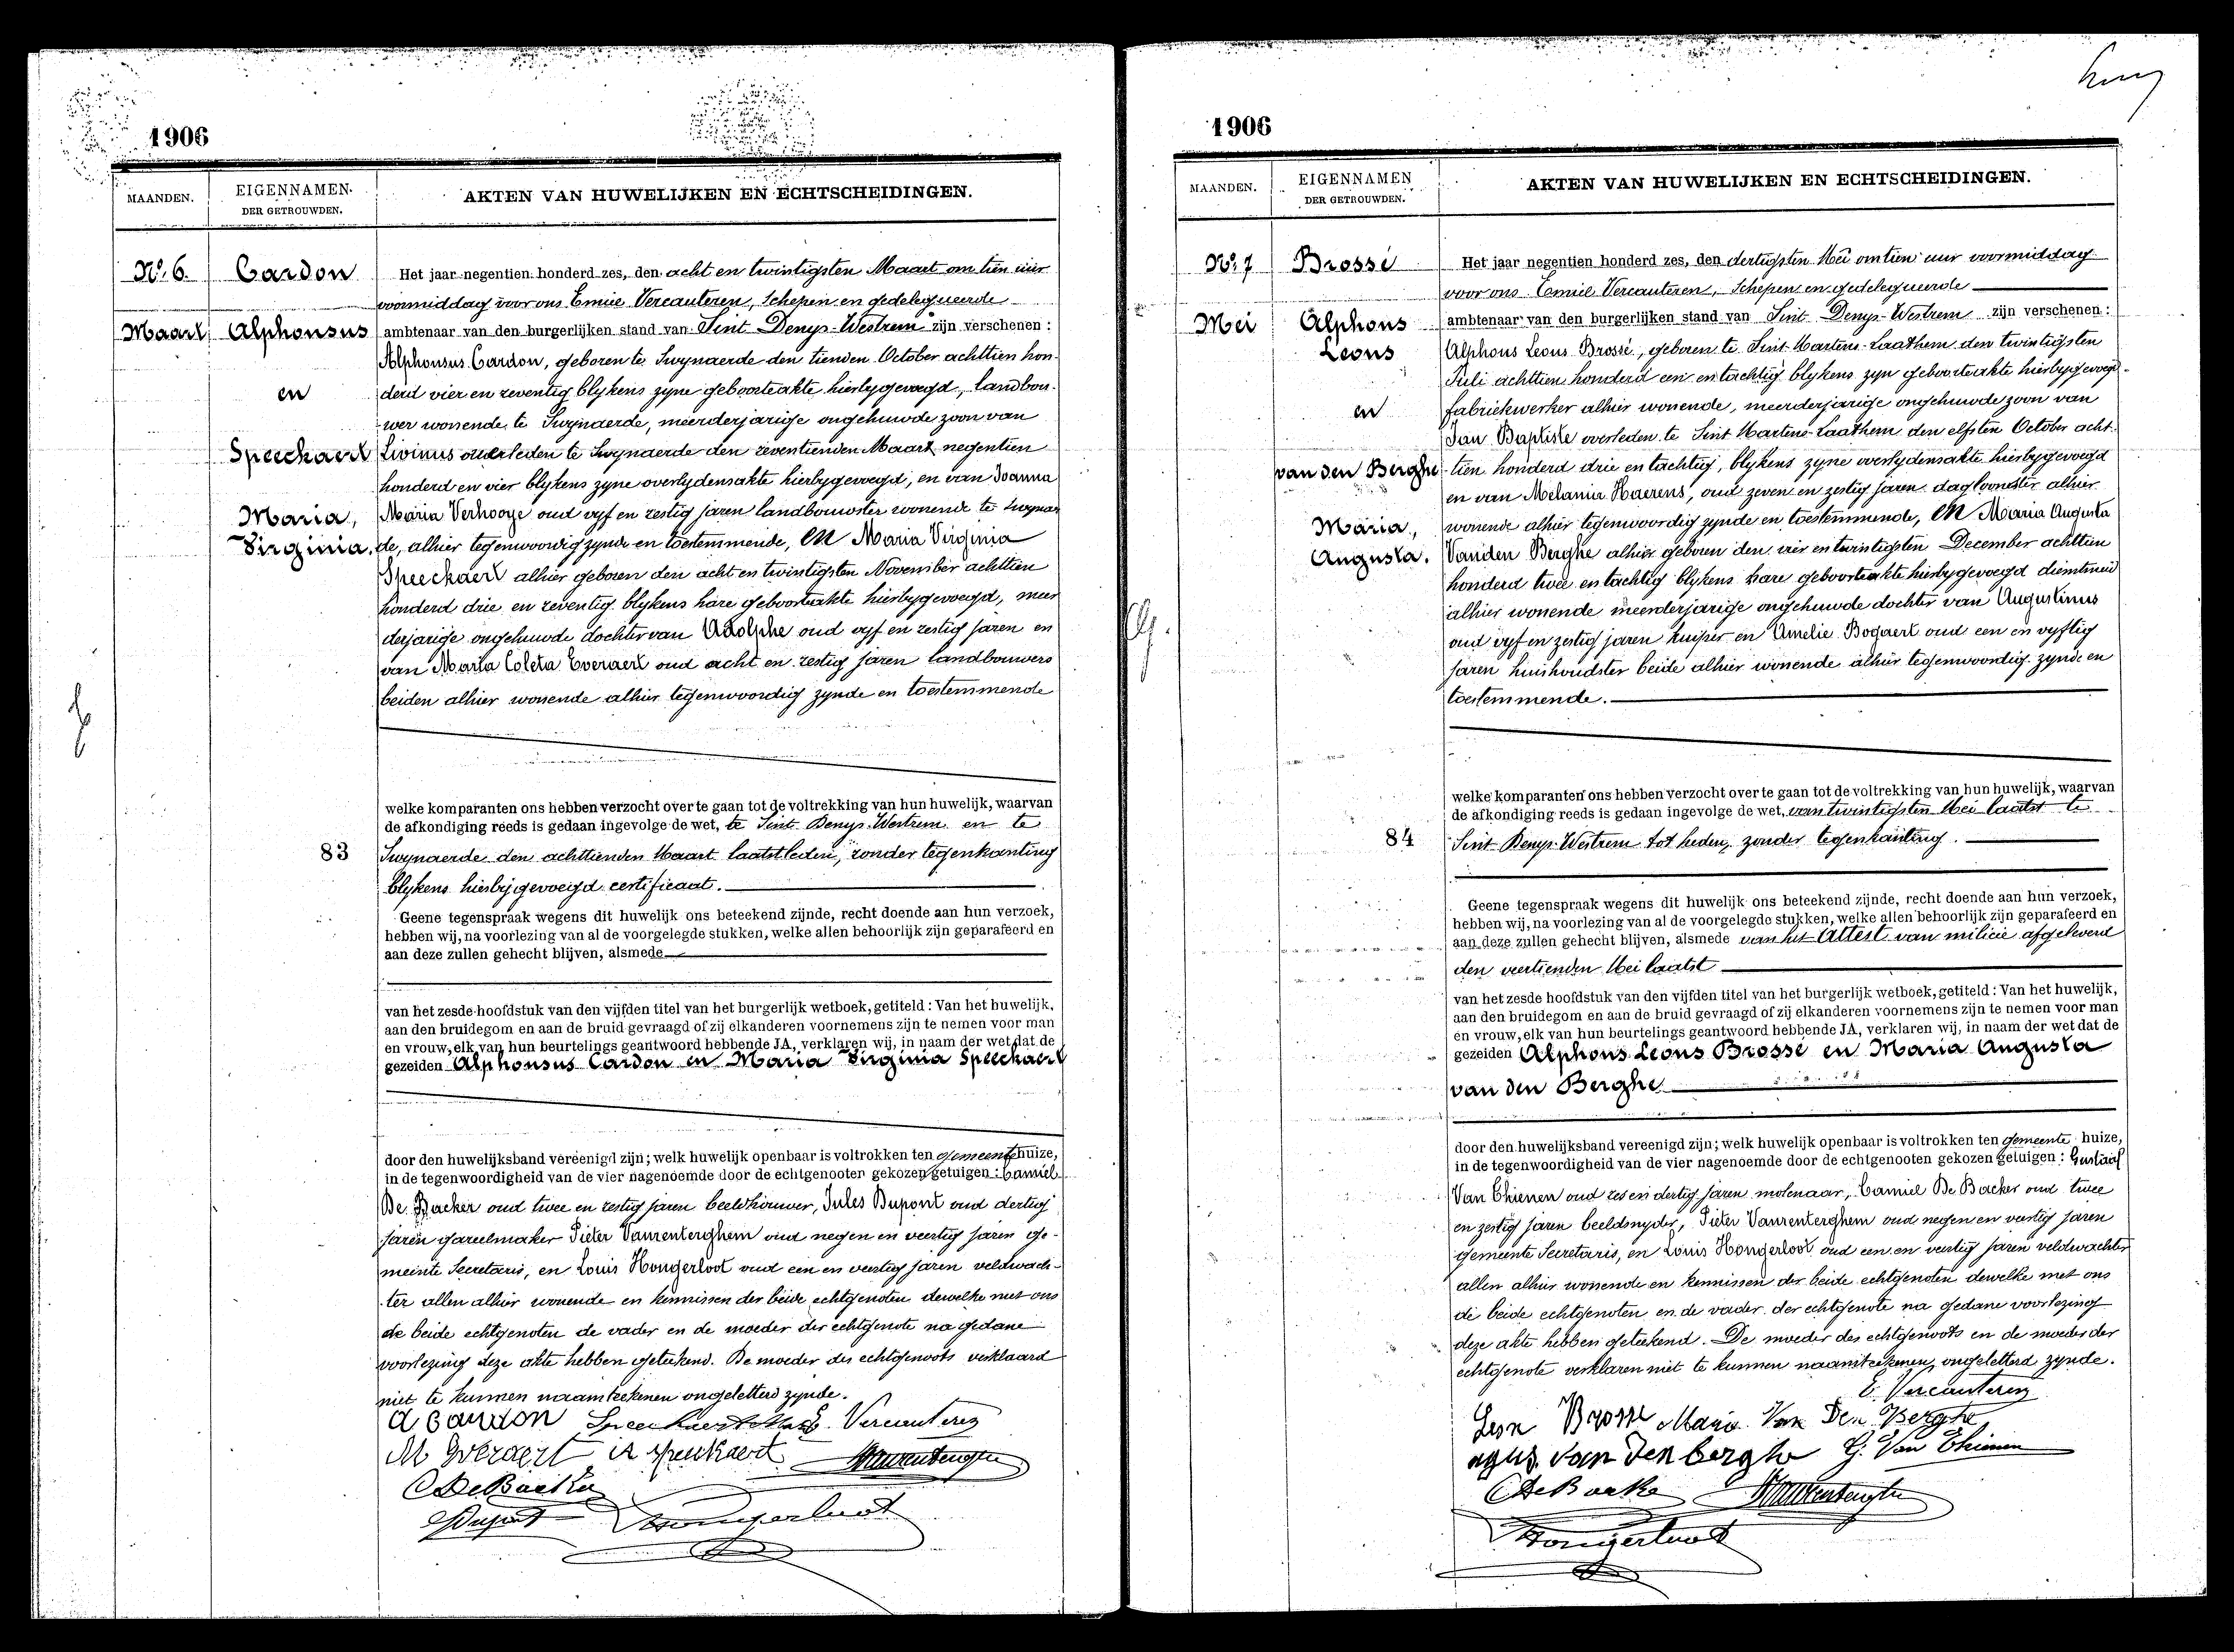 1906
MAANDEN.
EIGENNAMEN.
DER GETROUWDEN.
AKTEN VAN HUWELIJKEN EN ECHTSCHEIDINGEN.
No. 6.
Maart
Cardon
Alphonsus
en
Speeckaert
Maria,
Virginia.
Het jaar negentien honderd zes, den acht en twintigsten Maart om tien uur
voormiddag voor ons Emiie Vercauteren, Schepen en gedelegueerde
ambtenaar van den burgerlijken stand van Sint Denys-Westrem zijn verschenen :
Alphonsus Cardon, geboren te Swynaerde den tienden October achttien hon-
derd vier en zeventig blykens zyne geboorteakte hierbygevoegd, landbou-
wer wonende te Swynaerde, meerderjarige ongehuwde zoon van
Livinus overleden te Swynaerde den zeventienden Maart negentien
honderd en vier blykens zyne overlydensakte hierbygevoegd, en van Joanna
Maria Verhooye oud vyf en zestig jaren landbouwster wonende te Swynaer
de, alhier tegenwoordig zynde en toestemmende, en Maria Virginia
Speeckaert alhier geboren den acht en twintigsten November achttien
honderd drie en zeventig blykens hare geboorteakte hierbygevoegd, meer
derjarige ongehuwde dochter van Adolphe oud vyf en zestig jaren en
van Maria Coleta Everaert oud acht en zestig jaren landbouwers
beiden alhier wonende alhier tegenwoordig zynde en toestemmende
welke komparanten ons hebben verzocht over te gaan tot de voltrekking van hun huwelijk, waarvan
de afkondiging reeds is gedaan ingevolge de wet, te Sint Denys-Westrem en te
83
Swynaerde den achttienden Maart laatstleden, zonder tegenkanting
blykens hierbijgevoegd certificaat.
Geene tegenspraak wegens dit huwelijk ons beteekend zijnde, recht doende aan hun verzoek,
hebben wij, na voorlezing van al de voorgelegde stukken, welke allen behoorlijk zijn geparafeerd en
aan deze zullen gehecht blijven, alsmede
van het zesde hoofdstuk van den vijfden titel van het burgerlijk wetboek, getiteld : Van het huwelijk,
aan den bruidegom en aan de bruid gevraagd of zij elkanderen voornemens zijn te nemen voor man
en vrouw, elk van hun beurtelings geantwoord hebbende JA, verklaren wij, in naam der wet dat de
gezeiden Alphonsus Cardon en Maria Virginia Speeckaert
door den huwelijksband vereenigd zijn; welk huwelijk openbaar is voltrokken ten gemeentehuize,
in de tegenwoordigheid van de vier nagenoemde door de echtgenooten gekozen getuigen : Camiel
De Backer oud twee en zestig jaren beeldhouwer, Jules Dupont oud dertig
jaren gareelmaker Pieter Vanrenterghem oud negen en veertig jaren ge-
meente Secretaris, en Louis Hongerloot oud een en veertig jaren veldwach-
ter allen alhier wonende en kennissen der beide echtgenoten dewelke met ons
de beide echtgenoten de vader en de moeder der echtgenote na gedane
voorlezing deze akte hebben geteekend. De moeder des echtgenoots verklaard
niet te kunnen naamteekenen ongeletterd zynde.
A Cardon Speeckaert Maria E. Vercauteren
M Everaert A Speeckaert
C De Backer
Dupont Hongerloot
1906
MAANDEN.
EIGENNAMEN
DER GETROUWDEN.
AKTEN VAN HUWELIJKEN EN ECHTSCHEIDINGEN.
No. 7
Mei
Brossé
Alphons
Leons
en
van den Berghe
Maria,
Augusta.
Het jaar negentien honderd zes, den dertigsten Mei om tien uur voormiddag
voor ons Emiel Vercauteren, Schepen en gedelegueerde
ambtenaar van den burgerlijken stand van Sint Denys-Westrem zijn verschenen :
Alphons Leons Brossé, geboren te Sint-Martens-Laathem den twintigsten
Juli achttien honderd een en tachtig blykens zyn geboorteakte hierbygevoegd
fabriekwerker alhier wonende, meerderjarige ongehuwde zoon van
Jan Baptiste overleden te Sint Martens-Laathem den elfsten October acht-
tien honderd drie en tachtig, blykens zyne overlydensakte hierbygevoegd
en van Melania Haerens, oud zeven en zestig jaren dagloonster alhier
wonende alhier tegenwoordig zynde en toestemmende, en Maria Augusta
Vanden Berghe alhier geboren den vier en twintigsten December achttien
honderd twee en tachtig blykens hare geboorteakte hierbygevoegd dienstmeid
alhier wonende meerderjarige ongehuwde dochter van Augustinus
oud vyf en zestig jaren kuiper en Amelie Bogaert oud een en vyftig
jaren huishoudster beide alhier wonende alhier tegenwoordig zynde en
toestemmende.
welke komparanten ons hebben verzocht over te gaan tot de voltrekking van hun huwelijk, waarvan
de afkondiging reeds is gedaan ingevolge de wet, van twintigsten Mei laatst te
84
Sint-Denys-Westrem tot heden, zonder tegenkanting.
Geene tegenspraak wegens dit huwelijk ons beteekend zijnde, recht doende aan hun verzoek,
hebben wij, na voorlezing van al de voorgelegde stukken, welke allen behoorlijk zijn geparafeerd en
aan deze zullen gehecht blijven, alsmede van het Attest van milicie afgeleverd
den veertienden Mei laatst
van het zesde hoofdstuk van den vijfden titel van het burgerlijk wetboek, getiteld : Van het huwelijk,
aan den bruidegom en aan de bruid gevraagd of zij elkanderen voornemens zijn te nemen voor man
en vrouw, elk van hun beurtelings geantwoord hebbende JA, verklaren wij, in naam der wet dat de
gezeiden Alphons Leons Brossé en Maria Augusta
van den Berghe
door den huwelijksband vereenigd zijn; welk huwelijk openbaar is voltrokken ten gemeente huize,
in de tegenwoordigheid van de vier nagenoemde door de echtgenooten gekozen getuigen : Gustaaf
Van Thienen oud zes en dertig jaren molenaar, Camiel De Backer oud twee
en zestig jaren beeldsnyder, Pieter Vanrenterghem oud negen en veertig jaren
gemeente Secretaris, en Louis Hongerloot oud een en veertig jaren veldwachter
allen alhier wonende en kennissen der beide echtgenoten dewelke met ons
de beide echtgenoten en de vader der echtgenote na gedane voorlezing
deze akte hebben geteekend. De moeder des echtgenoots en de moeder der
echtgenote verklaren niet te kunnen naamteekenen, ongeletterd zynde.
E. Vercauteren
Leon Brosse Maria Van Den Berghe
agus. van den berghe G. Van Thienen
C De Backer
Hongerloot